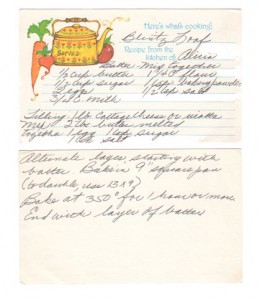 Here's what's cooking:
Blintz Loaf
Serves:
Recipe from the
kitchen of
Batter Mix Together
1/2 cup butter
1/2 cup sugar
2 eggs
3/4 C milk
1 1/4 C flour
1 tsp. baking powder
1/2 tsp salt
Filling 1 lb Cottage Cheese or ricotta
Mix 2 tbs butter melted
together 1 egg 1 tsp sugar
salt
Alternate layer starting with
batter Bake in 9" square pan
(to double, use 13 x 9)
Bake at 350° for 1 hour or more
End with layer of batter